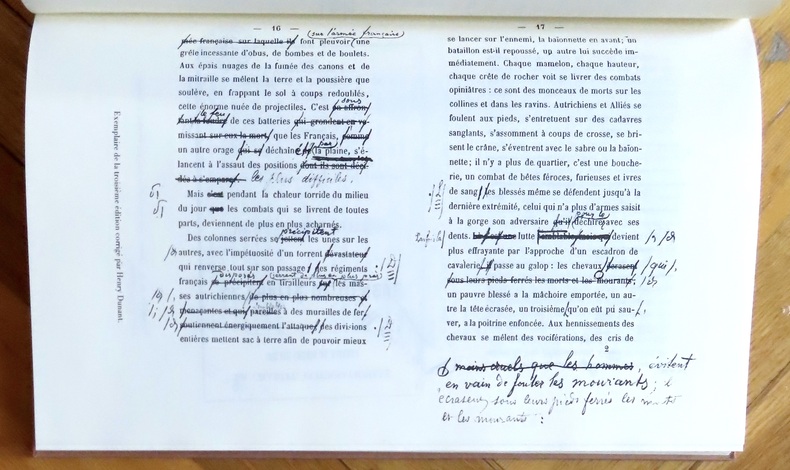 — 16 —
(sur l'armée française)
pée française sur laquelle ils font pleuvoir une
grêle incessante d'obus, de bombes et de boulets.
Aux épais nuages de la fumée des canons et de
la mitraille se mêlent la terre et la poussière que
soulève, en frappant le sol à coups redoublés,
cette énorme nuée de projectiles. C'est sous
le feu de ces batteries qui grondent en vo-
missant sur eux la mort, que les Français, comme
un autre orage qui se déchaîne par la plaine, s'é-
lancent à l'assaut des positions dont ils sont déci-
dés à s'emparer. les plus difficiles.
Mais c'est pendant la chaleur torride du milieu
du jour que les combats qui se livrent de toutes
parts, deviennent de plus en plus acharnés.
précipitent
Des colonnes serrées se jettent les unes sur les
autres, avec l'impétuosité d'un torrent dévastateur
qui renverse tout sur son passage; des régiments
français se précipitent en tirailleurs sur les mas-
ses autrichiennes, de plus en plus nombreuses et
menaçantes et qui, pareilles à des murailles de fer,
soutiennent énergiquement l'attaque; des divisions
entières mettent sac à terre afin de pouvoir mieux
Exemplaire de la troisième édition corrigé par Henry Dunant.
— 17 —
se lancer sur l'ennemi, la baïonnette en avant; un
bataillon est-il repoussé, un autre lui succède im-
médiatement. Chaque mamelon, chaque hauteur,
chaque crête de rocher voit se livrer des combats
opiniâtres : ce sont des monceaux de morts sur les
collines et dans les ravins. Autrichiens et Alliés se
foulent aux pieds, s'entretuent sur des cadavres
sanglants, s'assomment à coups de crosse, se bri-
sent le crâne, s'éventrent avec le sabre ou la baïon-
nette; il n'y a plus de quartier, c'est une bouche-
rie, un combat de bêtes féroces, furieuses et ivres
de sang; les blessés même se défendent jusqu'à la
dernière extrémité, celui qui n'a plus d'armes saisit
à la gorge son adversaire qu'il déchire avec ses
dents. lutte devient
plus effrayante par l'approche d'un escadron de
cavalerie, il passe au galop : les chevaux écrasent
sous leurs pieds ferrés les morts et les mourants;
un pauvre blessé a la mâchoire emportée, un au-
tre la tête écrasée, un troisième qu'on eût pu sau-
ver, a la poitrine enfoncée. Aux hennissements des
chevaux se mêlent des vociférations, des cris de
2
moins cruels que les hommes, évitent
en vain de fouler les mourants;
écrasent sous leurs pieds ferrés les morts
et les mourants :